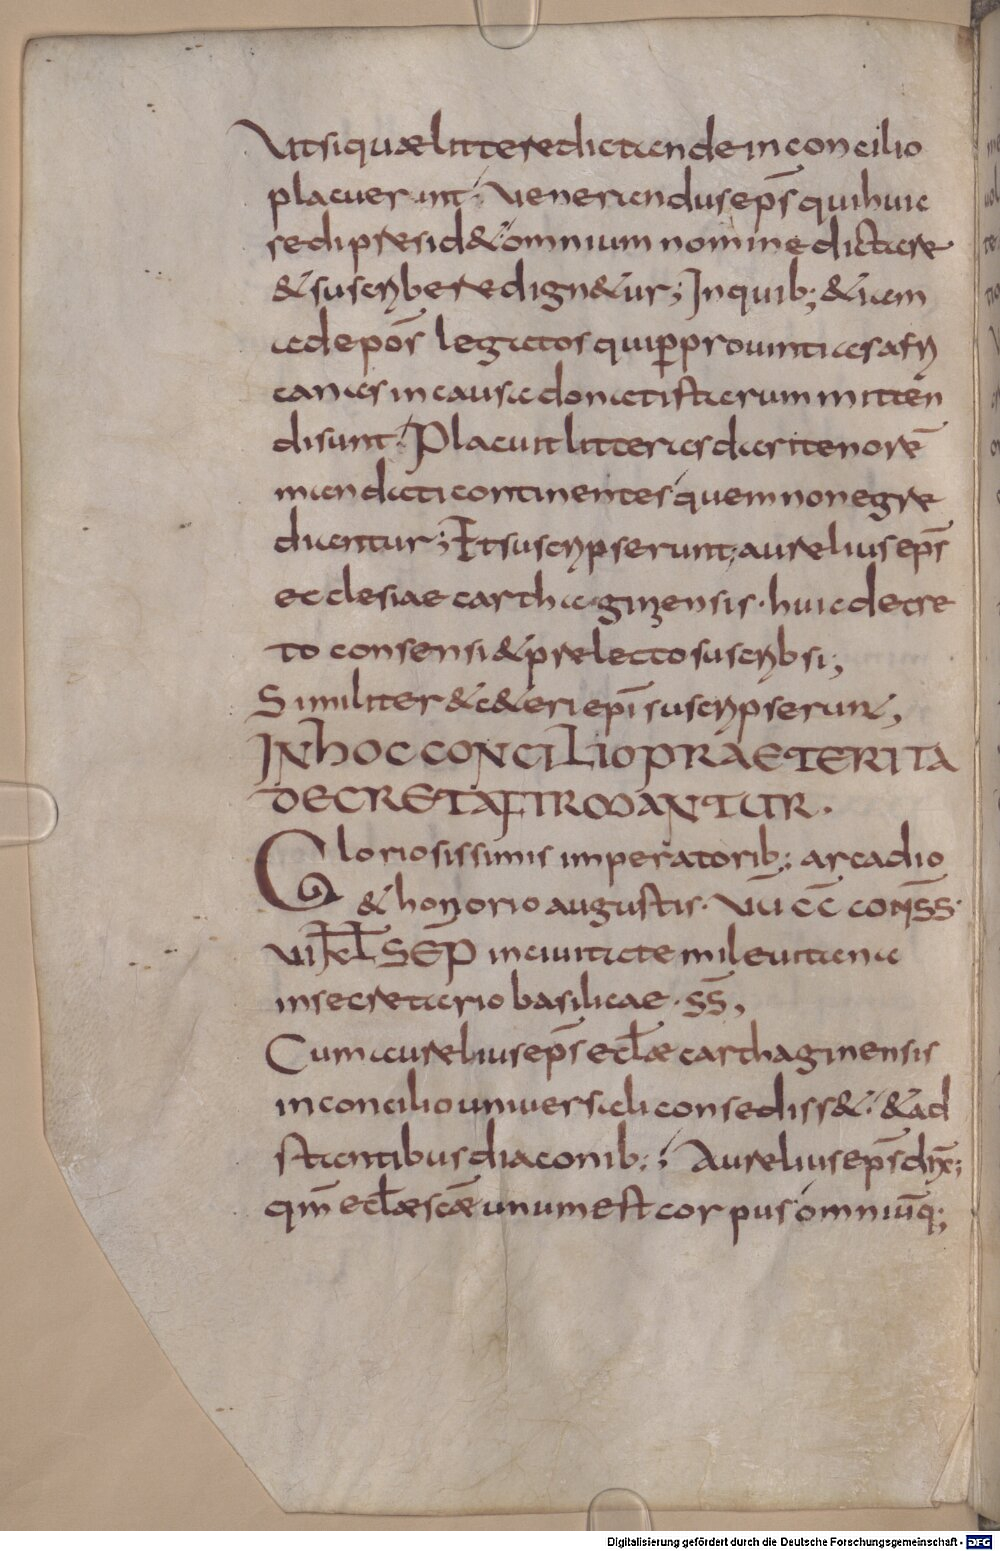 Utsiquælitteredictande in concilio
placuerunt; Venerandus ep̄s qui huic
sedi presid&. omnium nomine dictare
& suscribere dign&ur; In quib; & iam
ade pōs legatos qui ꝑ prouintias afri
canas in causa donatistarum mitten
di sunt. Placuit litteras dari tenorē
mandati continentes quem non egre
diantur; Et suscripserunt; aurelius ep̄s
ecclesiae carthaginensis. huic decre
to consensi & prelecto suscribsi;
Similiter & c&eri ep̄i suscripserunt,
IN hOC CONCILIO PRAETERITA
DECRETA FIRMANTUR.
Gloriosissimis imperatorib; arcadio
& honorio augustis. VU C̄C̄ CONS̄S̄.
VI K̄L̄ SEP in ciuitate mileuitana
in secretario basilicae. s̄s̄,
Cum aurelius ep̄s ecl̄æ carthaginensis
in concilio uniuersali consediss&. & ad
stantibus diaconib;; Aurelius ep̄s dix̄;
qm̄ ecl̄æ scǣ unum est corpus omniūq;
Digitalisierung gefördert durch die Deutsche Forschungsgemeinschaft - DFG